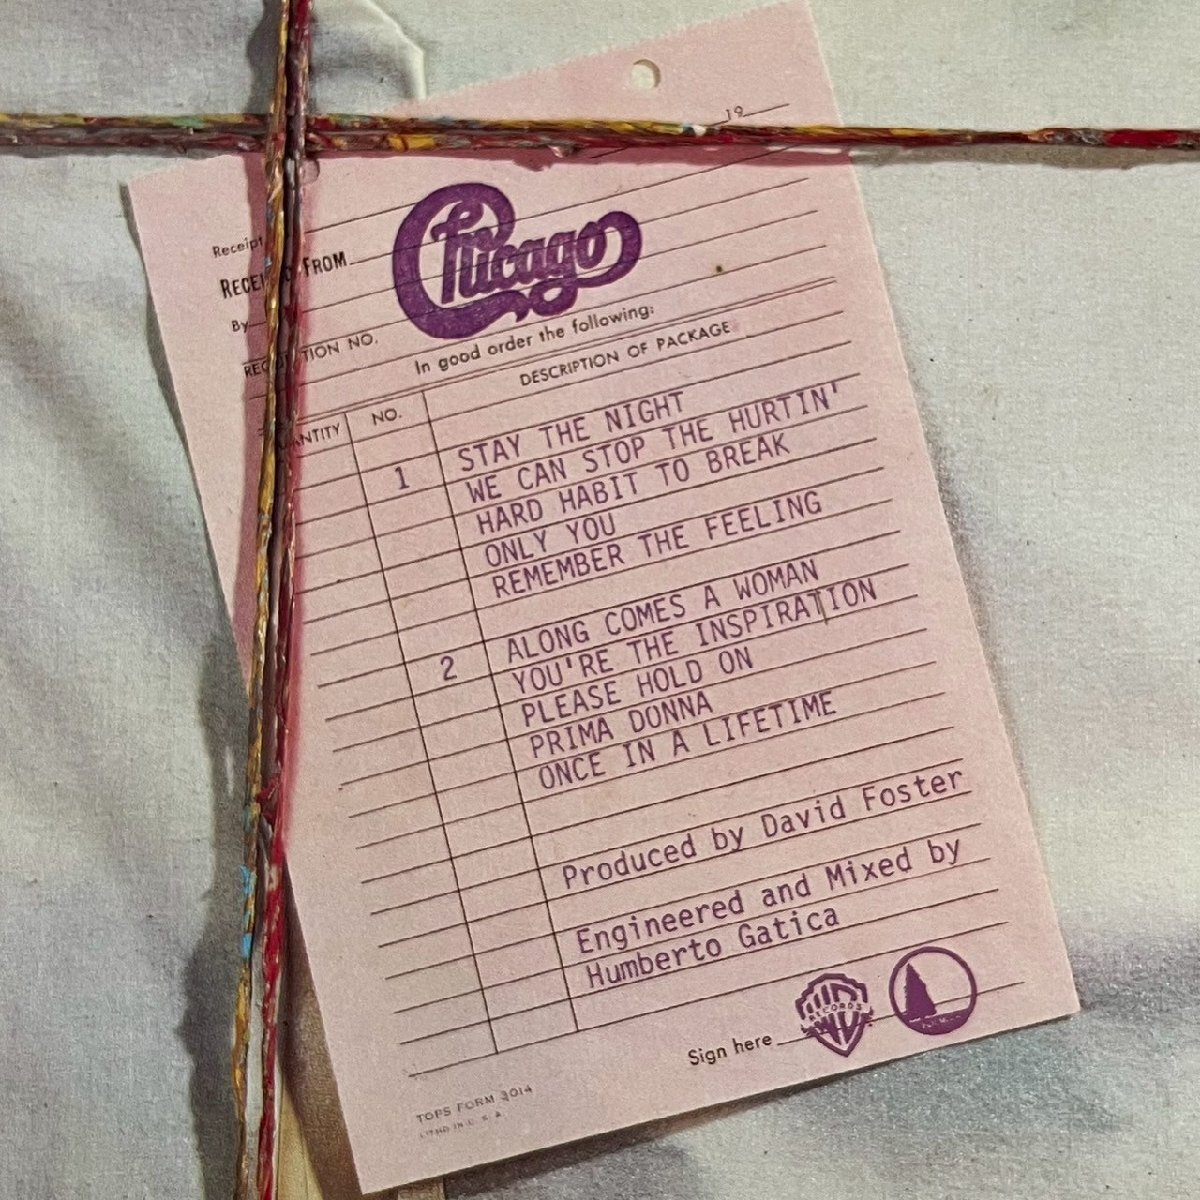 19
Receipt
RECEI FROM
Chicago
By
REC TION NO.
In good order the following:
DESCRIPTION OF PACKAGE
ANTITY NO.
STAY THE NIGHT
1 WE CAN STOP THE HURTIN'
HARD HABIT TO BREAK
ONLY YOU
REMEMBER THE FEELING
ALONG COMES A WOMAN
2 YOU'RE THE INSPIRATION
PLEASE HOLD ON
PRIMA DONNA
ONCE IN A LIFETIME
Produced by David Foster
Engineered and Mixed by
Humberto Gatica
Sign here
WB RECORDS
TOPS FORM 3014
LITHO IN U. S. A.